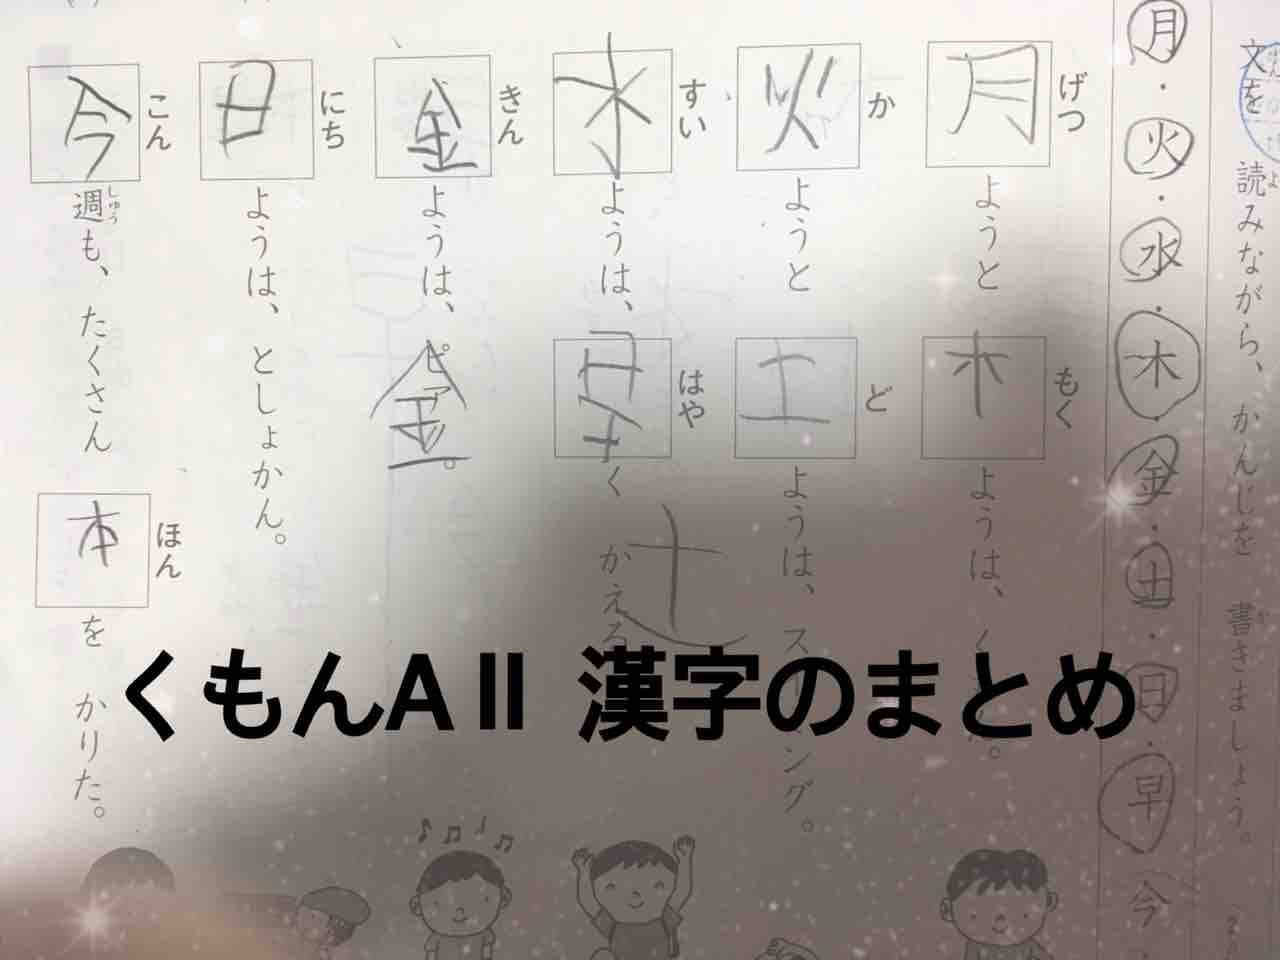 文を 読みながら、 かんじを 書きましょう。
よ
か
月・火・水・木・金・土・日・早・今
げつ
月ようと
もく
木ようは、
か
火ようと
ど
土ようは、 ス ング。
すい
水ようは、
はや
早く かえる
十
きん
金ようは、 ピア 。
金
にち
日ようは、 としょかん。
こん
今週も、 たくさん
しゅう
ほん
本を かりた。
くもんAⅡ 漢字のまとめ